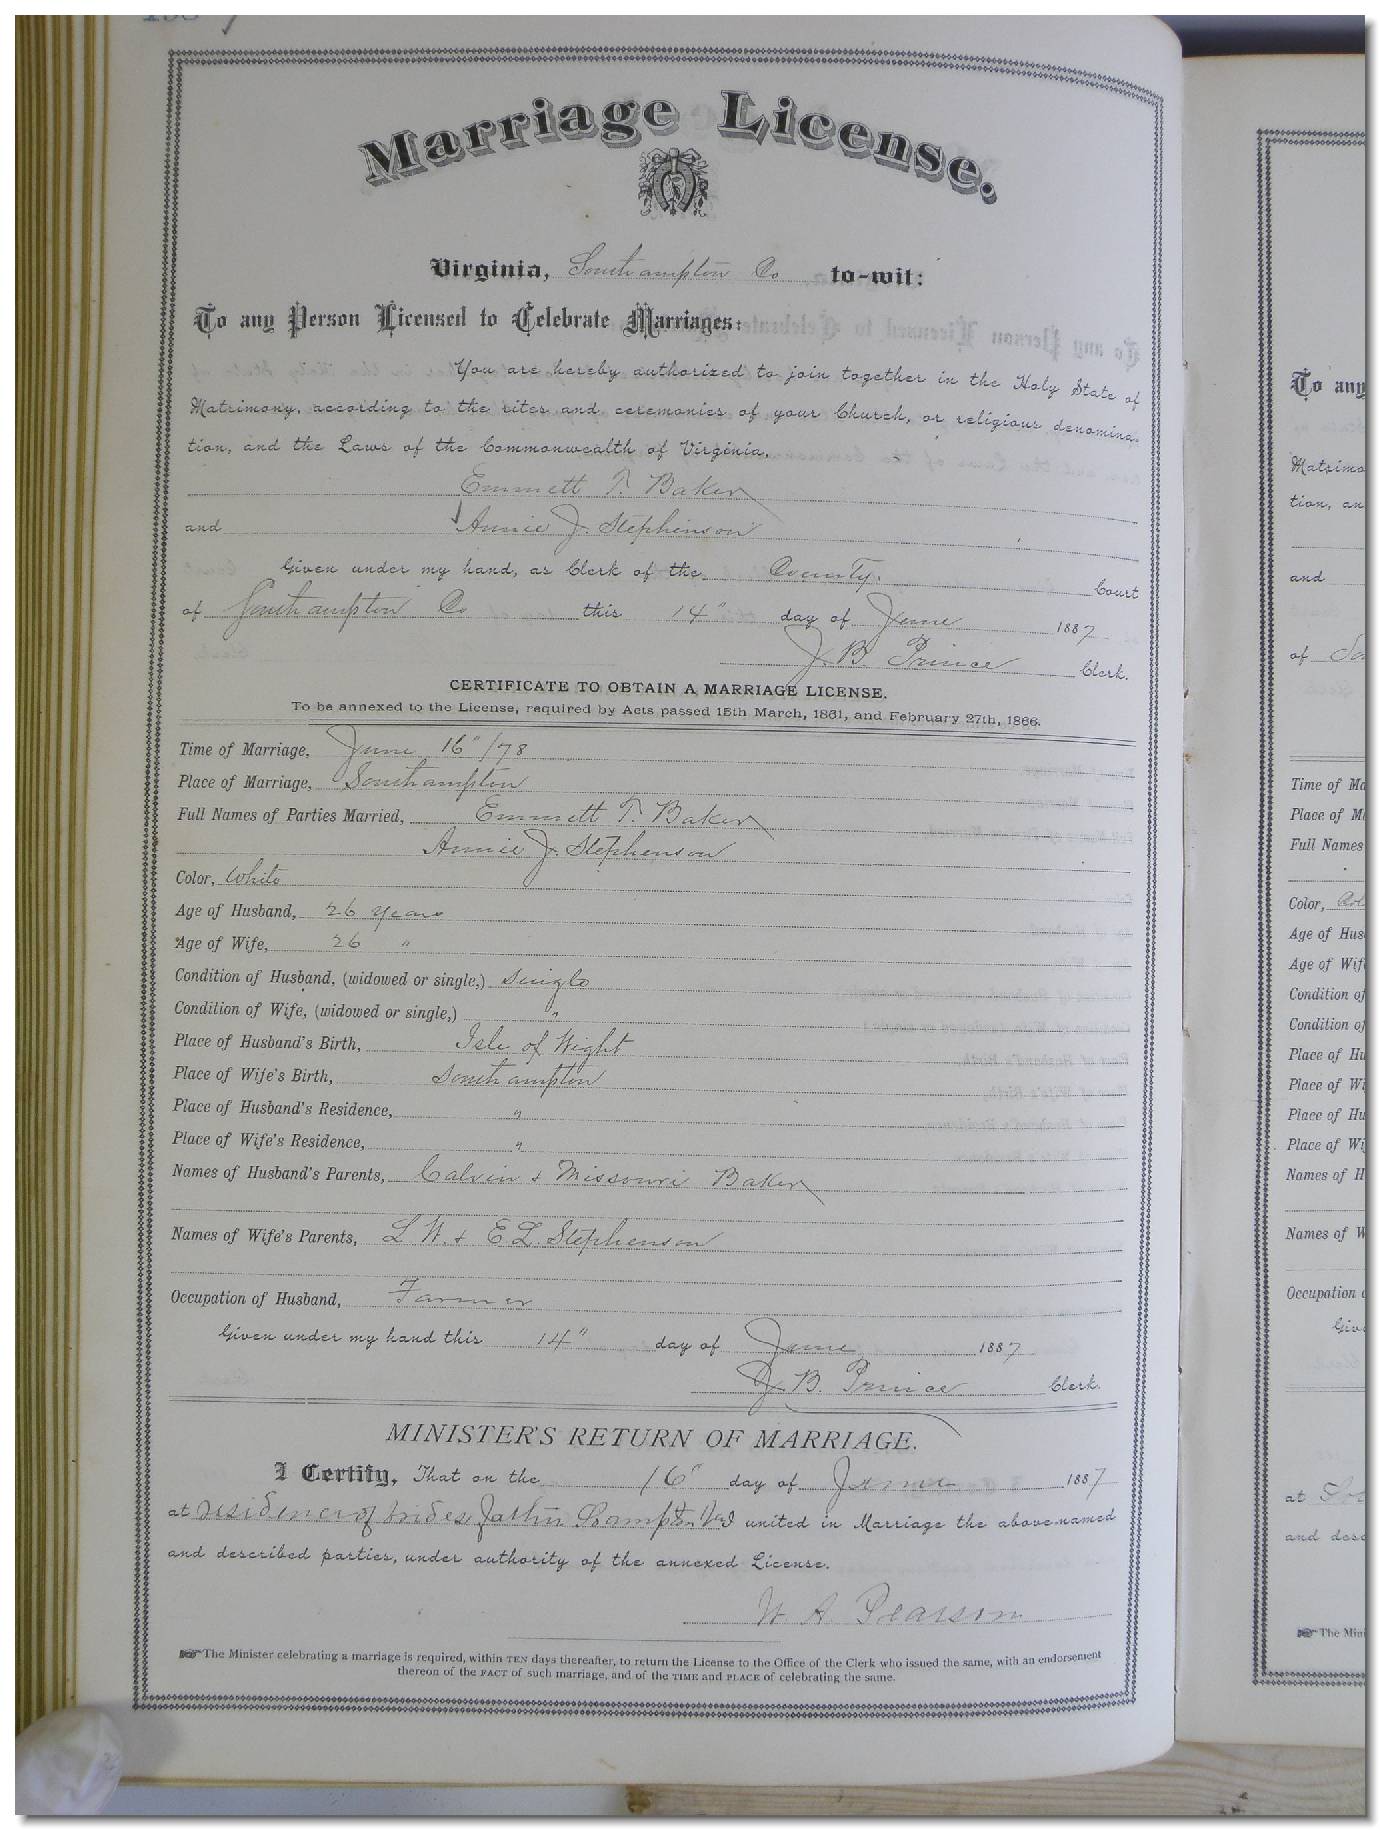 Marriage License.
Virginia, Southampton Co to-wit:
To any Person Licensed to Celebrate Marriages:
You are hereby authorized to join together in the Holy State of
Matrimony, according to the rites and ceremonies of your Church, or religious denomina-
tion, and the Laws of the Commonwealth of Virginia,
Emmett T. Baker
and Annie J. Stephenson
Given under my hand, as Clerk of the County. Court
of Southampton Co this 14" day of June 1887
J. B. Prince Clerk.
CERTIFICATE TO OBTAIN A MARRIAGE LICENSE.
To be annexed to the License, required by Acts passed 15th March, 1861, and February 27th, 1866.
Time of Marriage, June 16"/78
Place of Marriage, Southampton
Full Names of Parties Married, Emmett T. Baker
Annie J. Stephenson
Color, White
Age of Husband, 26 years
Age of Wife, 26 "
Condition of Husband, (widowed or single,) Single
Condition of Wife, (widowed or single,) "
Place of Husband's Birth, Isle of Wight
Place of Wife's Birth, Southampton
Place of Husband's Residence, "
Place of Wife's Residence, "
Names of Husband's Parents, Calvin + Missouri Baker
Names of Wife's Parents, L W. + E L. Stephenson
Occupation of Husband, Farmer
Given under my hand this 14" day of June 1887
J. B. Prince Clerk.
MINISTER'S RETURN OF MARRIAGE.
I Certify, That on the 16" day of June 1887
at residence of brides father S.ampton I united in Marriage the above-named
and described parties, under authority of the annexed License.
W A Pearson
The Minister celebrating a marriage is required, within TEN days thereafter, to return the License to the Office of the Clerk who issued the same, with an endorsement
thereon of the FACT of such marriage, and of the TIME and PLACE of celebrating the same.
To any
Matrimo
tion, an
and
of
Time of Ma
Place of M
Full Names
Color, Col
Age of Hus
Age of Wif
Condition of
Condition of
Place of Hu
Place of Wi
Place of Hu
Place of Wi
Names of H
Names of W
Occupation o
Giv
at
and desc
The Mini